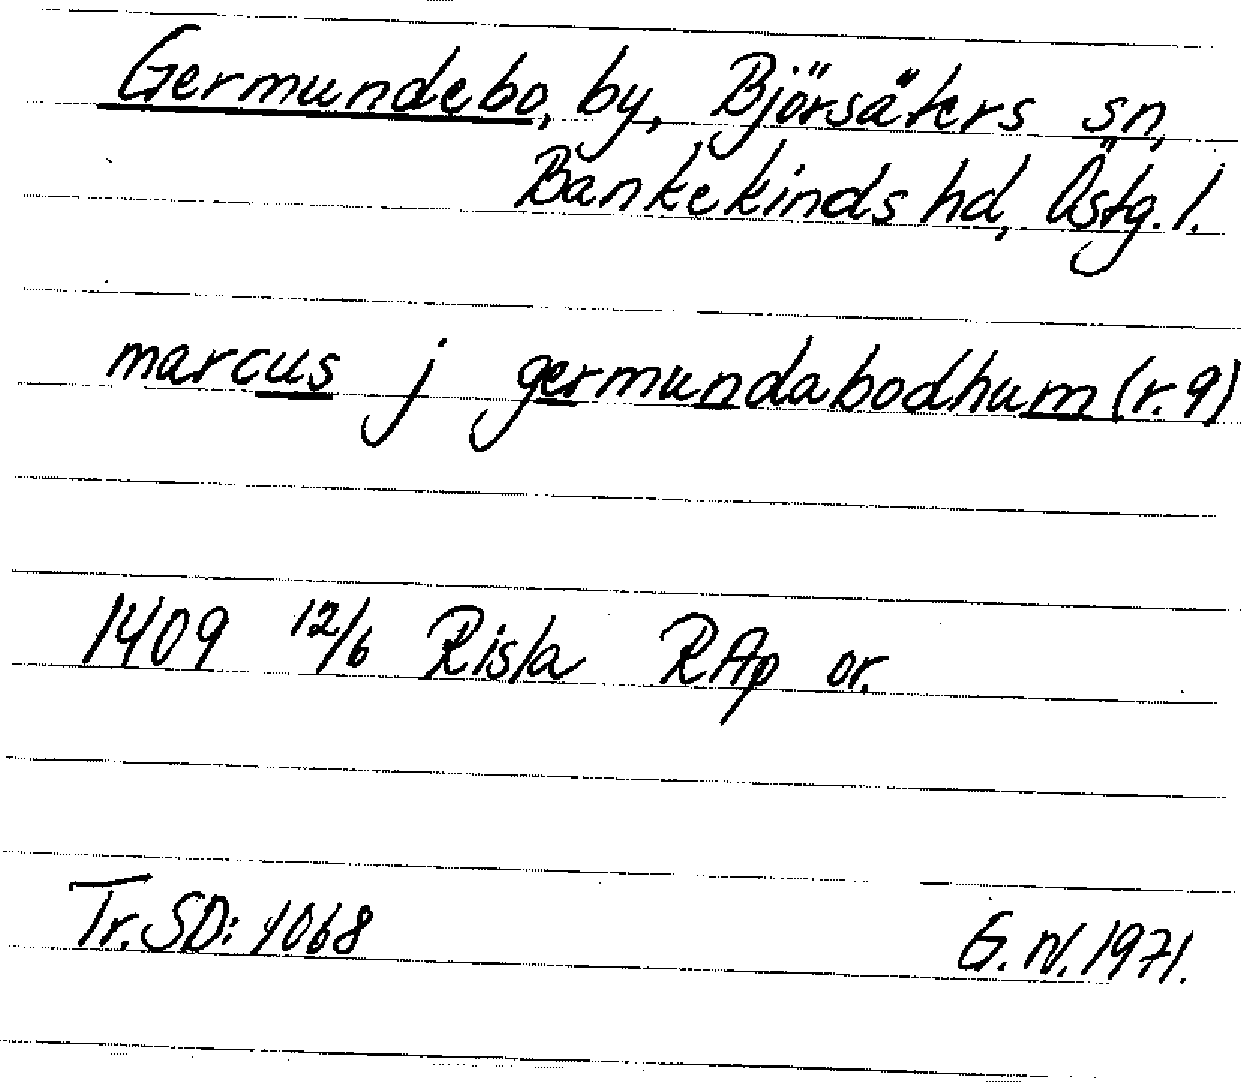 Germundebo, by, Björsäters sn,
Bankekinds hd, Östg. l.
marcus j germundabodhum (r. 9)
1409 12/6 Risla RAp or.
Tr. SD: 1068
G. N. 1971.